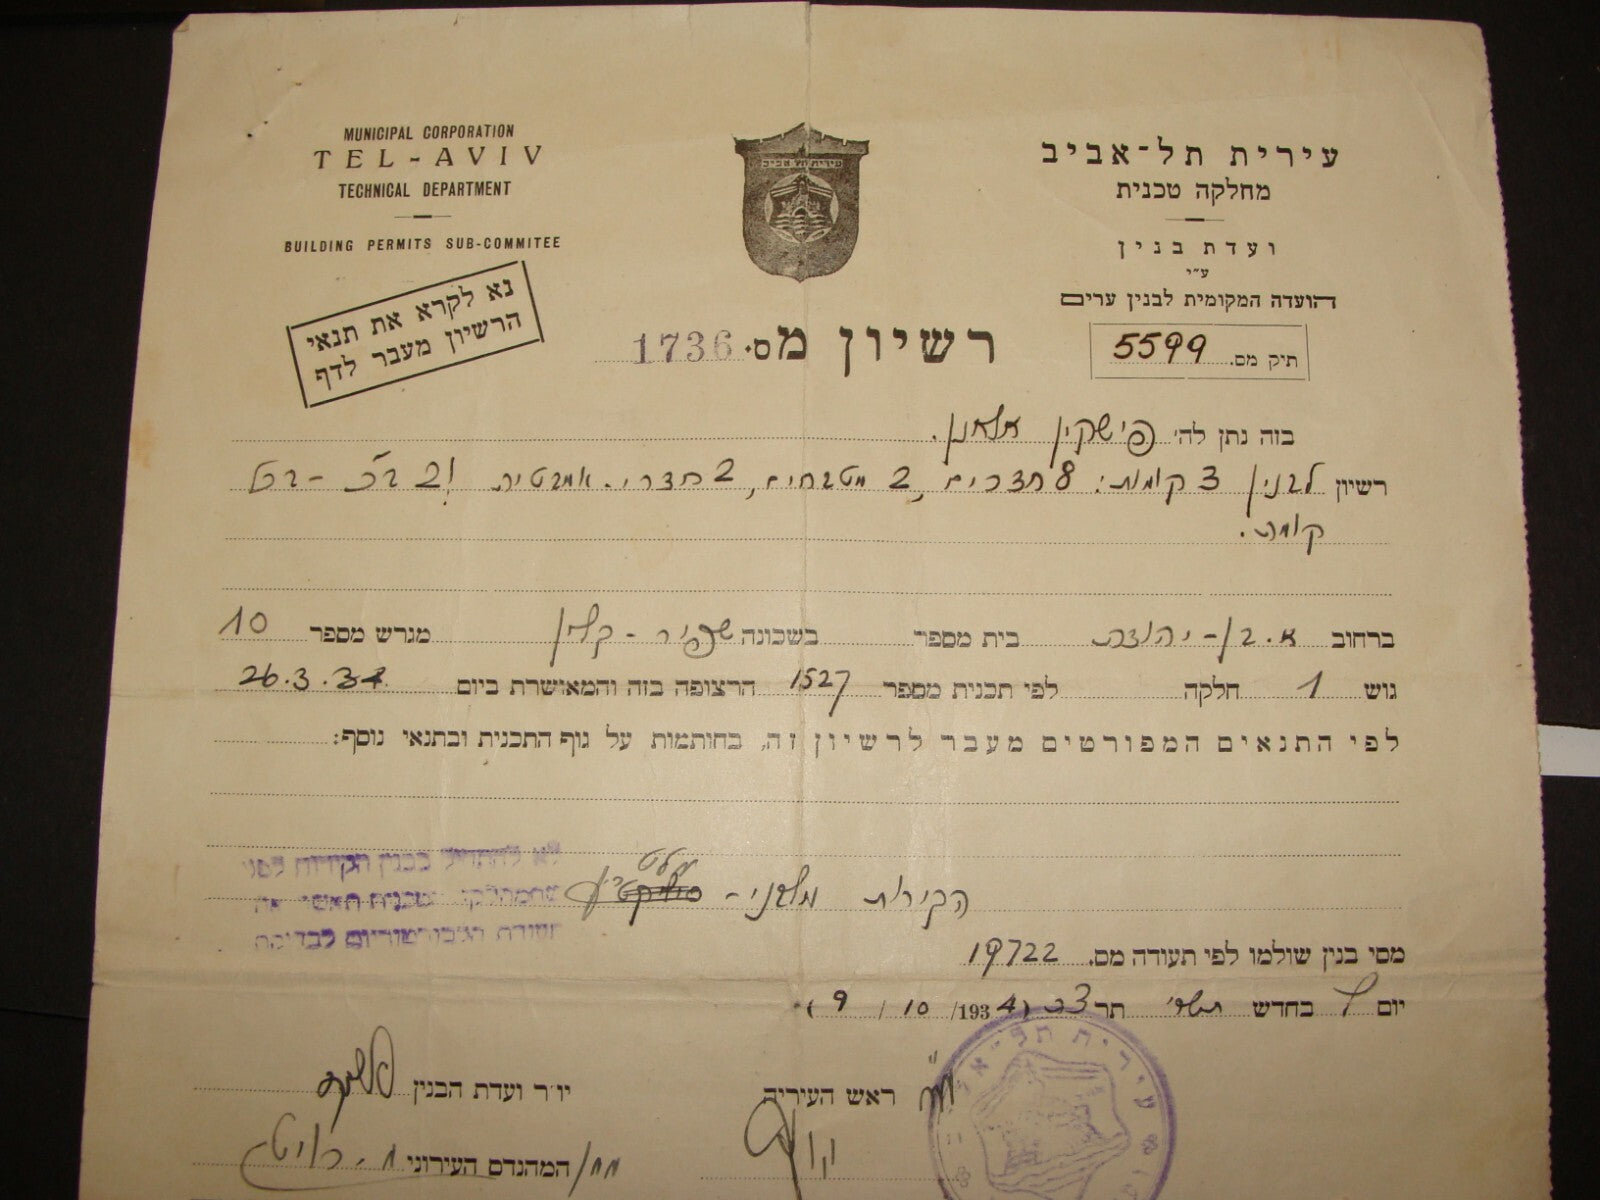 MUNICIPAL CORPORATION
TEL-AVIV
TECHNICAL DEPARTMENT
BUILDING PERMITS SUB-COMMITEE
עירית תל-אביב
מחלקה טכנית
ועדת בנין
ע״י
הועדה המקומית לבנין ערים
תיק מס. 5599
עירית תל אביב
נא לקרא את תנאי
הרשיון מעבר לדף
רשיון מס. 1736
בזה נתן לה׳ פישקין
רשיון לבנין 3 קומות: 8 חדרים, 2 מטבחים, 2 חדרי. אמבטית ו2 ב״כ - בכל
קומה.
ברחוב א. בן-יהודה בית מספר בשכונה שפיר - קליין מגרש מספר 10
גוש 1 חלקה לפי תכנית מספר 1527 הרצופה בזה והמאושרת ביום 26.3.34
לפי התנאים המפורטים מעבר לרשיון זה, בחותמות על גוף התכנית ובתנאי נוסף:
לא להתחיל בבנין הקירות לפני
הקירות מלבני-
מסי בנין שולמו לפי תעודה מס. 19722
יום בחדש תר (1934/ 10 / 9)
עירית תל-אביב
ראש העיריה
יו״ר ועדת הבנין
המהנדס העירוני